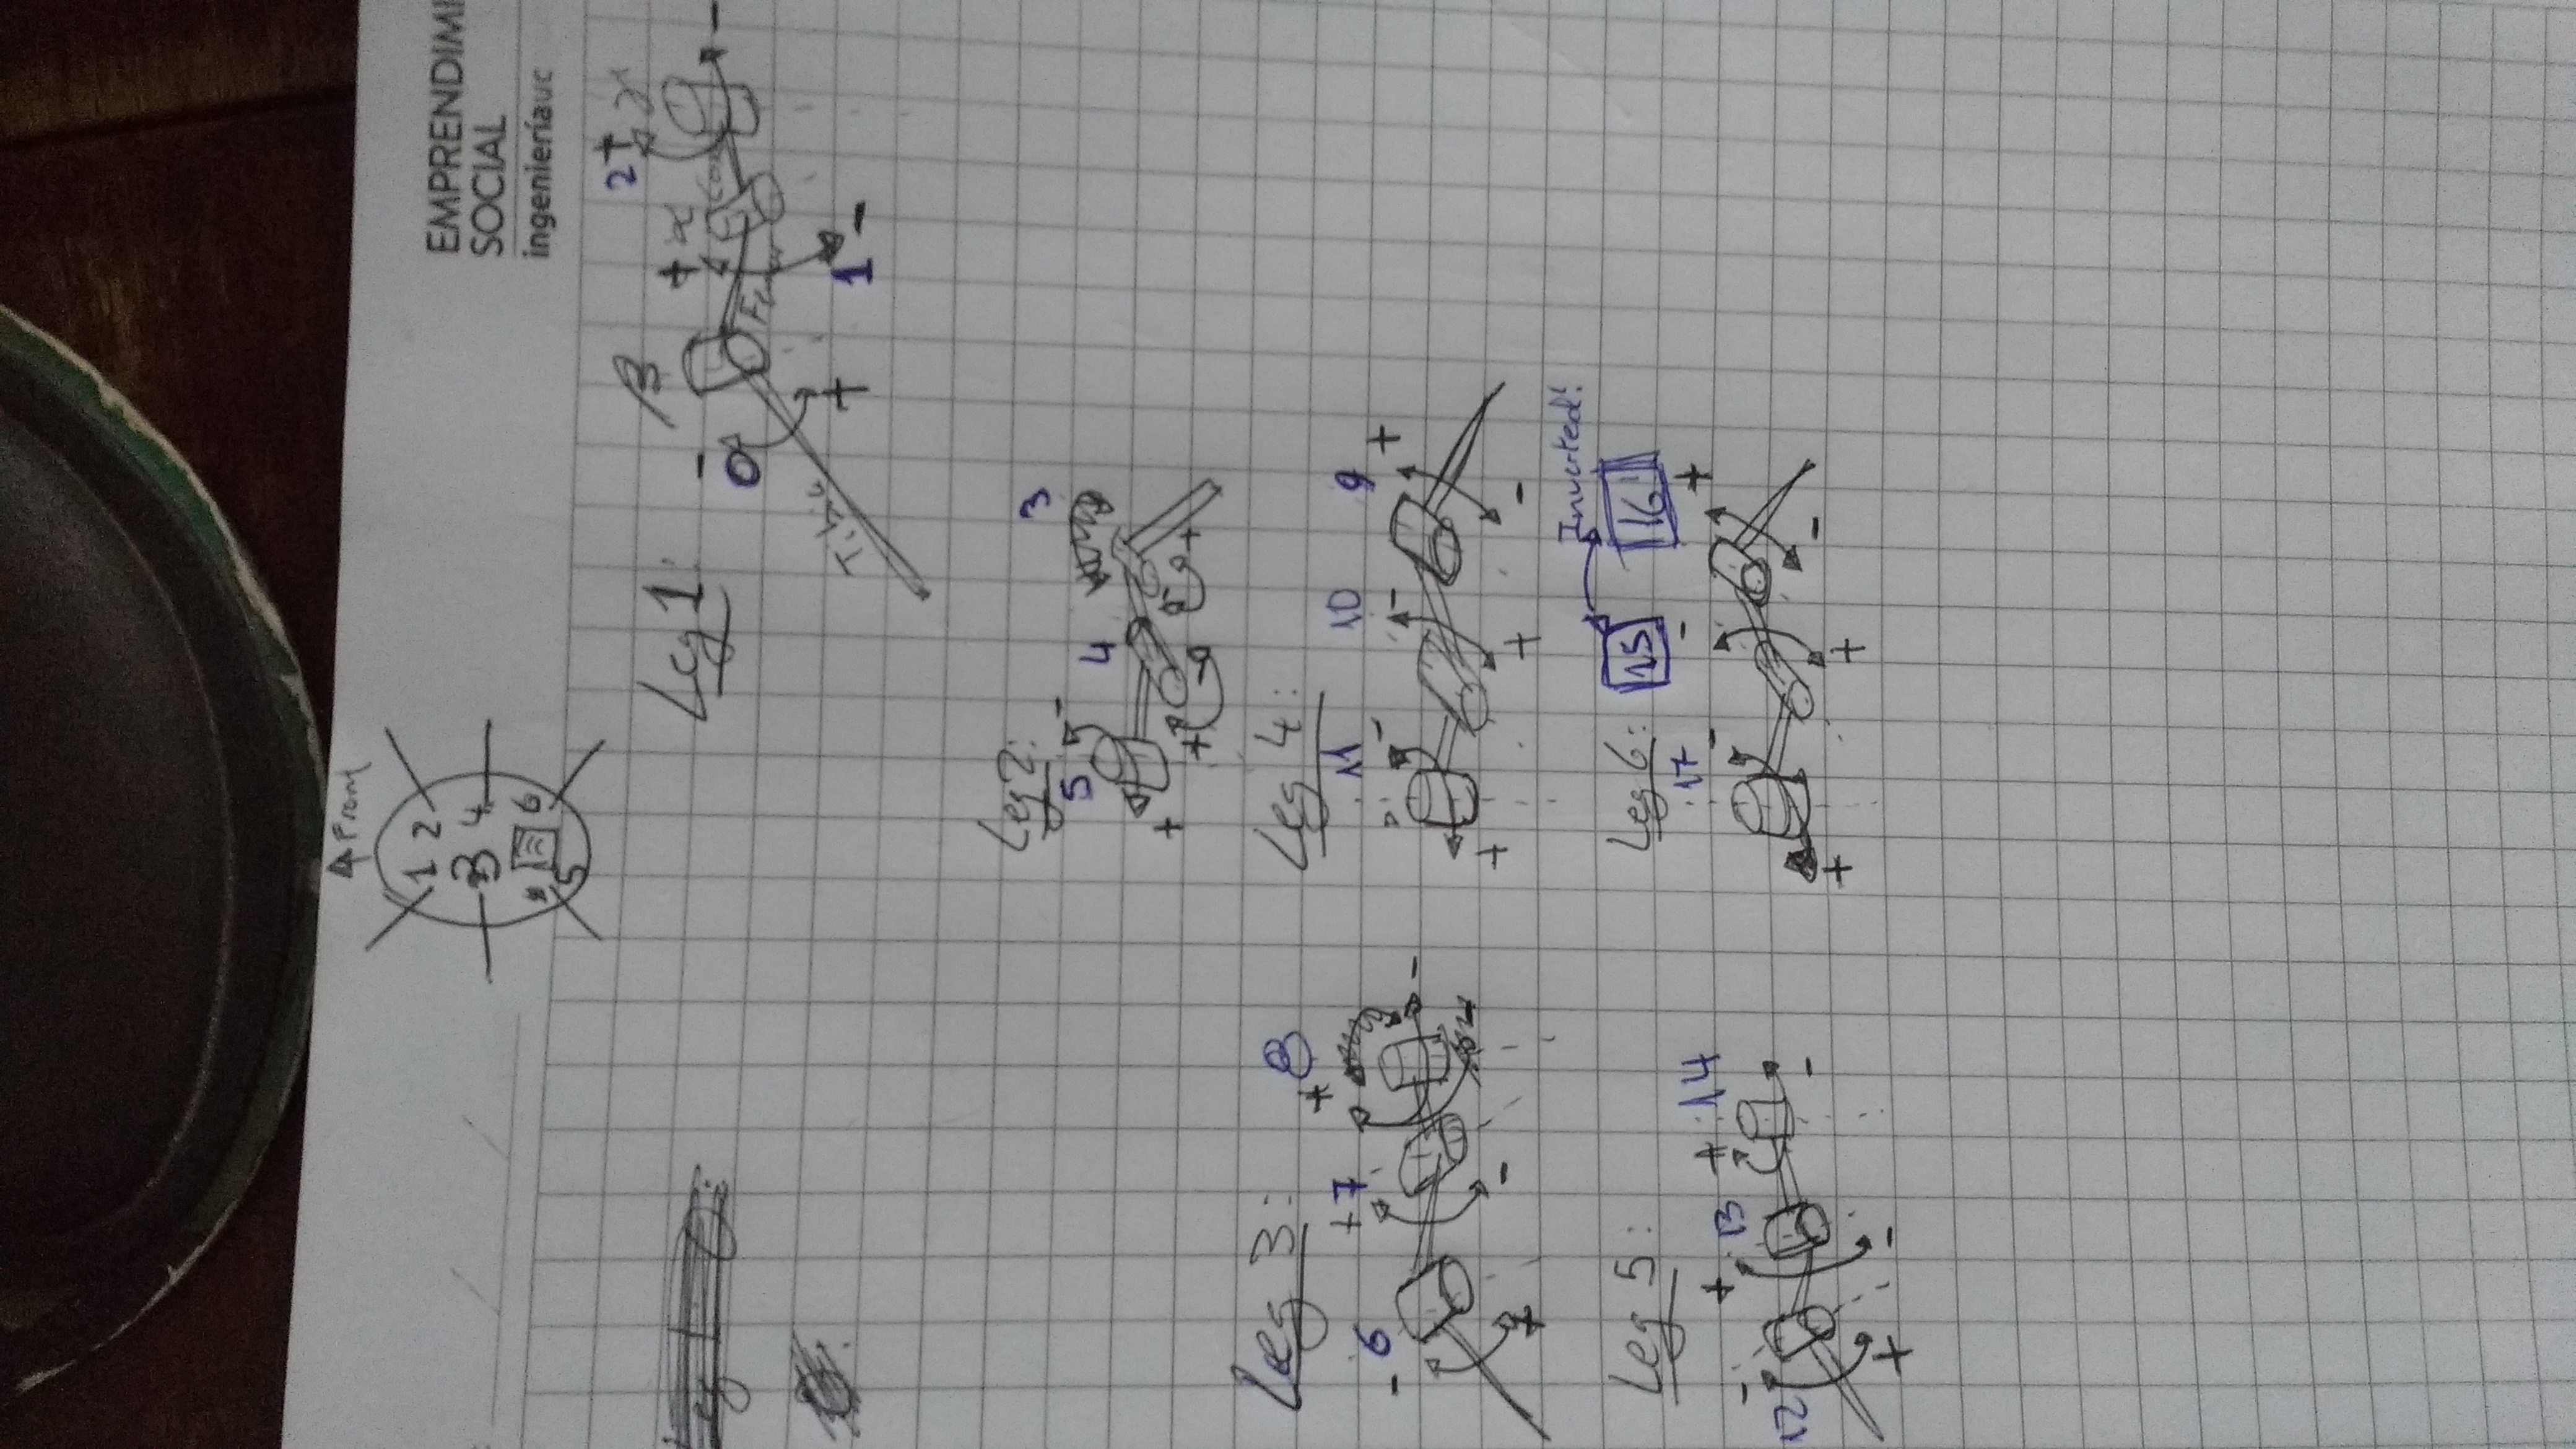 Front
1 2
3 4
6
5
EMPRENDIMI
SOCIAL
ingenieríauc
Leg 1:
β
2 + γ
- + α
0 -
Tibia Femur
+ 1 -
Leg 2:
3
5 -
4
+
+ - +
Leg 3:
8
+
+ 7
- 6
-
-
+
Leg 4:
11 - 10 - 9 +
+
+ -
Leg 5:
+ 13 + 14
-
12
-
+ -
Leg 6: 15 16 Inverted!
17 - - +
+ + -